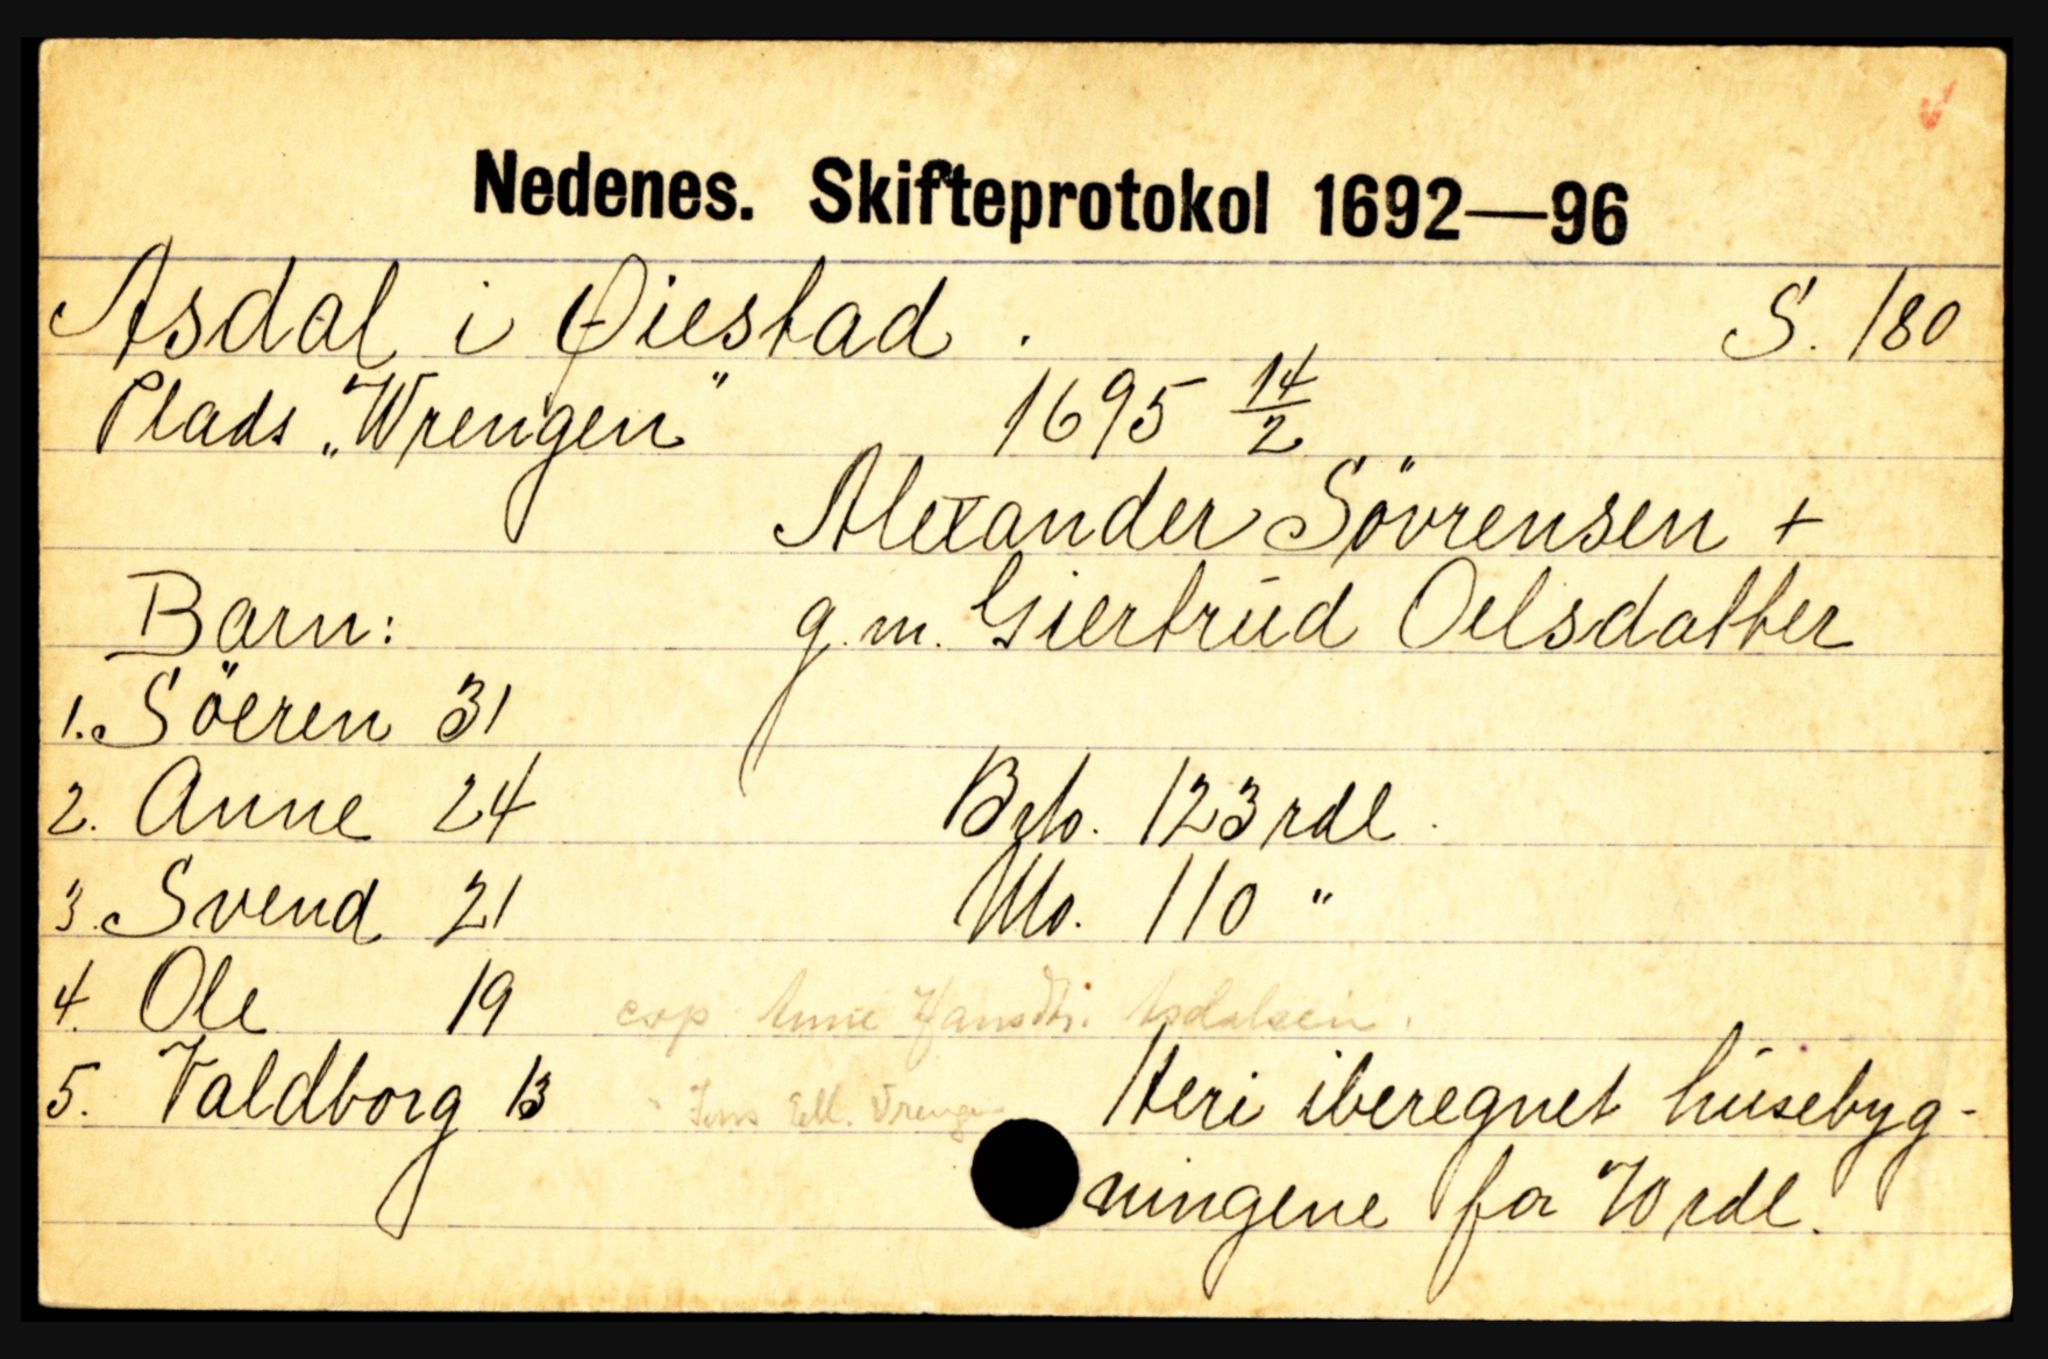 Nedenes. Skifteprotokol 1692—96
Asdal i Øiestad. S. 180
Plads „Wrengen" 1695 14/2
Alexander Sövrensen +
Barn: g.m. Giertrud Oelsdatter
1. Söeren 31
2. Anne 24 Brto. 123 rdl.
3. Svend 21 Nto. 110 "
4. Ole 19 cop Anne Hansdtr. Asdalsein.
5. Valdborg 13 " Jens Ell. Vrengen Heri iberegnet husebyg-
ningene for 70 rdl.